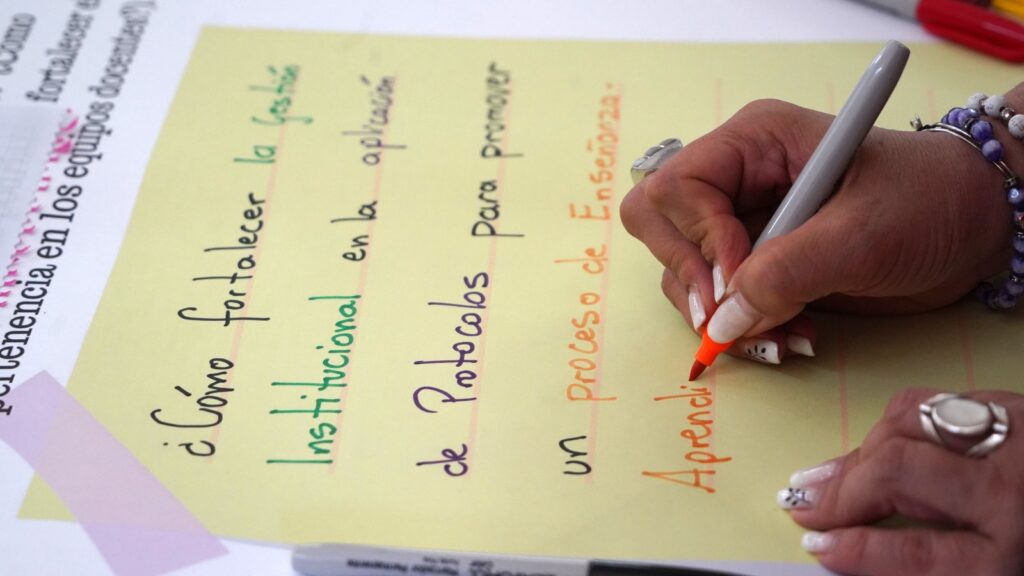 ¿Cómo
fortalecer e
pertenencia en los equipos docentes?),
¿Cómo fortalecer la Gestión
Institucional en la aplicación
de Protocolos para promover
un proceso de Enseñanza-
Aprendi